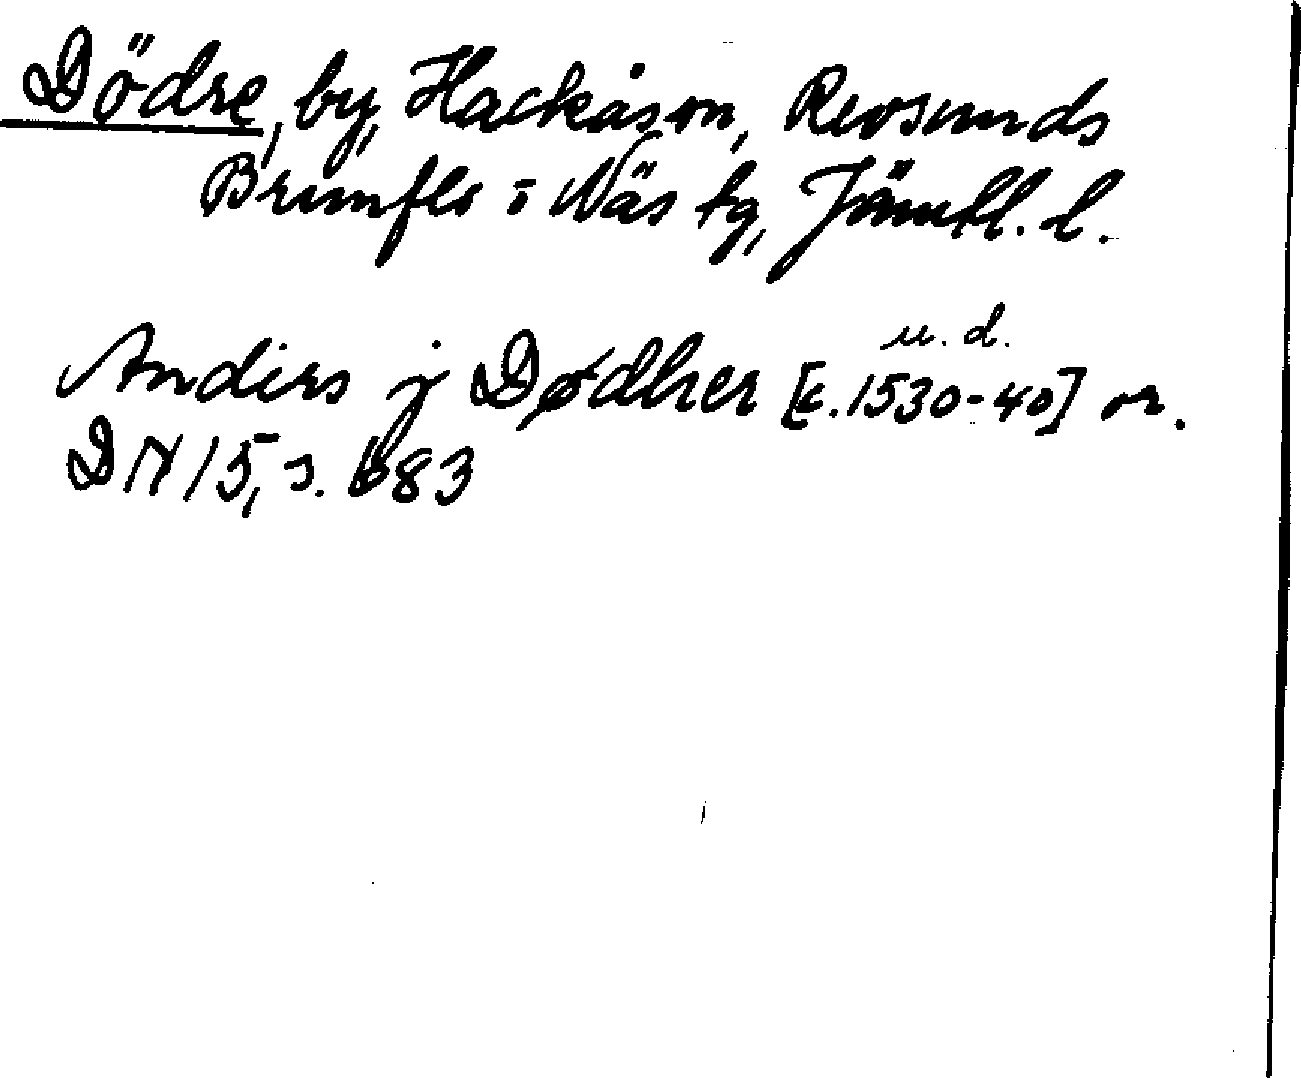 Dödre, by, Hackås sn, Revsunds
Brunflo o Näs tg, Jämtl. l.
u. d.
Anders j Dødher [c. 1530-40] or.
DN 15, s. 683